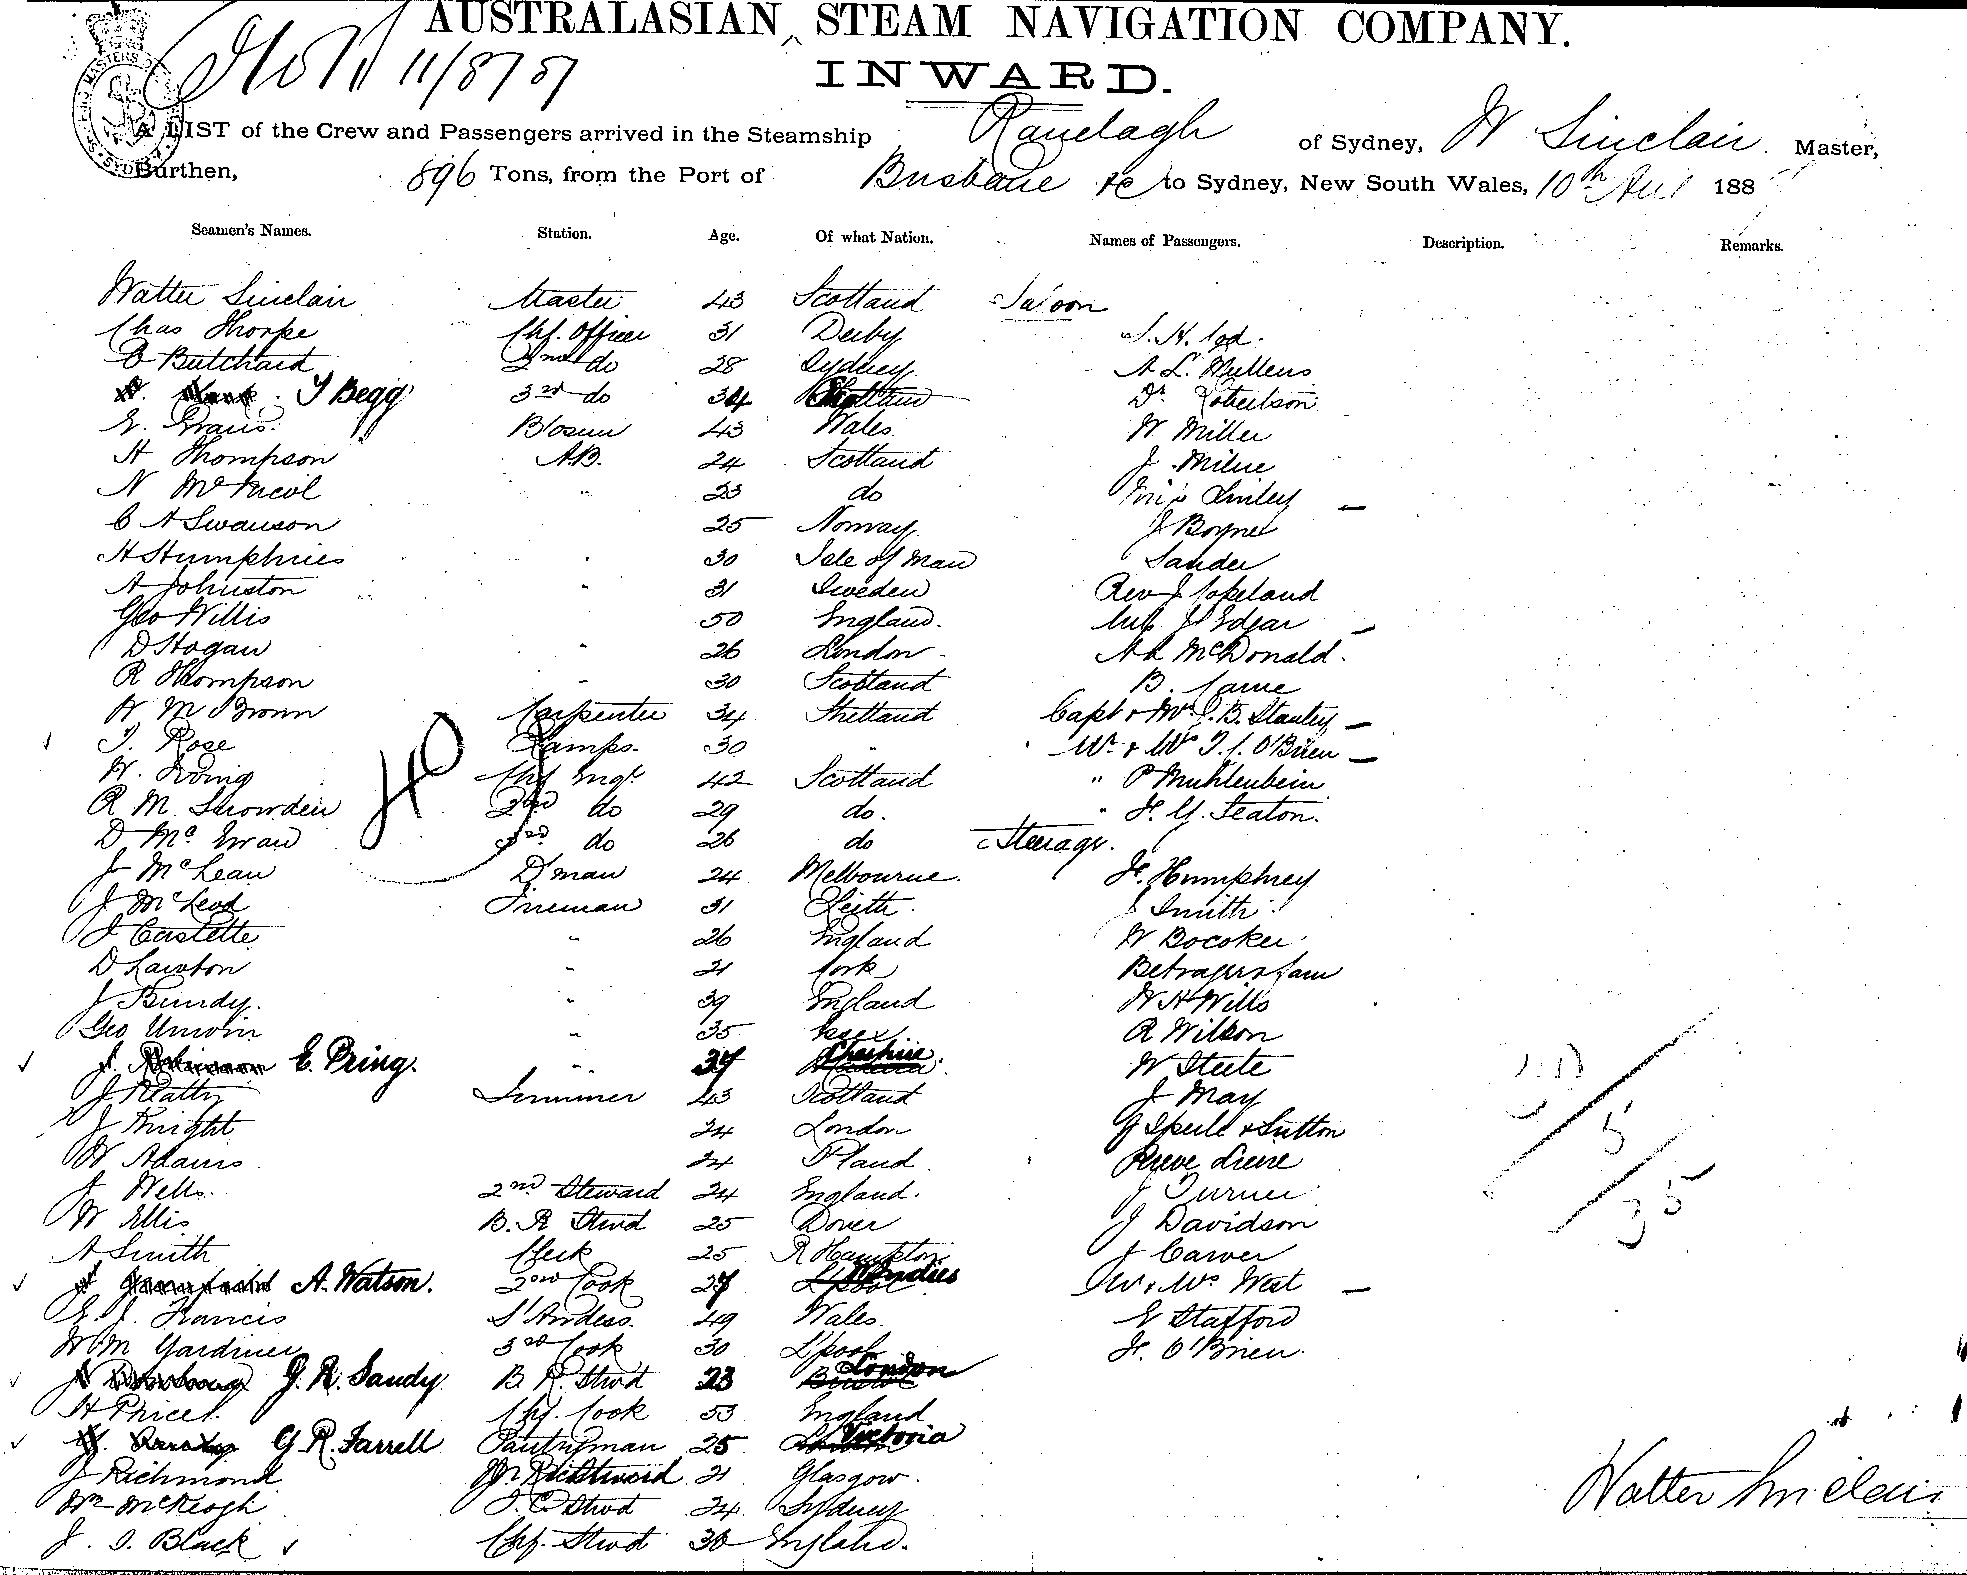 AUSTRALASIAN STEAM NAVIGATION COMPANY.
11/8/87
INWARD.
A LIST of the Crew and Passengers arrived in the Steamship Ranelagh of Sydney, W Sinclair Master,
Burthen, 896 Tons, from the Port of Brisbane &c to Sydney, New South Wales, 10th Aug 188
Seamen's Names. Station. Age. Of what Nation. Names of Passengers. Description. Remarks.
Walter Sinclair Master 43 Scotland Saloon
Chas Thorpe Chf. Officer 31 Derby
B Butchard 2nd do 28 Sydney A L. Mullens
T Begg 3rd do 34 Dr. Robertson
E. Evans Bosun 43 Wales W Miller
H Thompson A.B. 24 Scotland J Milne
N McNicol " 23 do Miss Linley
C A Swanson 25 Norway J Boyne
H Humphries " 30 Isle of Man Sander
A Johnston " 31 Sweden Rev J Copeland
Geo Willis 50 England. Mrs J Edgar
D Hogan " 26 London A McDonald.
R Thompson " 30 Scotland B. Carne
W M Brown Carpenter 34 Shetland Capt & Mrs B. Stanley
T. Rose Lamps. 30 " Mr & Mrs T. J. O'Brien
W. Irving Chf Engr. 42 Scotland " P Muhlenbein
R M Snowden 2nd do 29 do. " H. Y. Seaton.
D McEwan 3rd do 26 do Steerage.
J McLean D'man 24 Melbourne. H. Humphrey
J McLeod Fireman 31 Leith. J Smith
J Castette " 26 England W Bocoker
D Lawton " 21 York
J Bundy. " 39 England W H Wills
Geo Unwin " 35 Essex R Wilson
E. Pring. " 37 Cheshire. W Steele
J Beatty Trimmer 43 Scotland J May
J Knight 24 London G Speile & Sutton
W Adams 24
J Wells. 2nd Steward 24 England. J Turner
W Ellis B. R Stwd 25 Dover J Davidson
A Smith Clerk 25 R Hampton J Carver
A. Watson. 2nd Cook 27 W Indies Mr & Mrs West
E. J. Francis S'Andess. 49 Wales. E Stafford
Wm Gardiner 3rd Cook 30 L'pool H. O'Brien.
G. R. Sandy B. R. Stwd 23 London
H Price Chf. Cook 53 England
G. R. Farrell Pantryman 25 Victoria
J Richmond 21 Glasgow.
Wm McKeogh Stwd 24 Sydney
J. S. Black Chf. Stwd 30 England.
5
35
Walter Sinclair